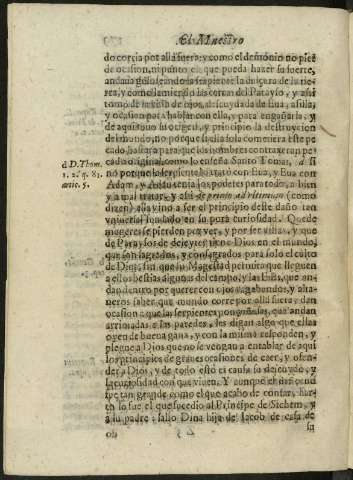 El Maestro
do corria por allá fuera: y como el demonio no pier
de ocasion, ni punto en que pueda hazer su suerte,
andaua golosmeando la serpiente la dulçura de la tie-
rra, y como lamiendo las cercas del Parayso, y assi
tomò de la vista de ojos, descuydada de Eua, asilla,
y ocasion para hablar con ella, y para engañarla, y
de aqui tuuo su origen, y principio la destruccion
del mundo, no porque si sola Eua comiera este pe
cado, bastara para que los hombres contraxeran pe-
cado original, como lo enseña Santo Tomas, d si
no porque la serpiente habló con Eua, y Eua con
Adam, y Adan tenia los poderes para todo, a bien
y a mal tratar, y assi de primo ad vltimum (como
dizen) ella vino a ser el principio deste daño tan
vniuersal fundado en su pura curiosidad. Que de
mugeres se pierden por ver, y por ser vistas, y que
de Paraysos de deleytes tiene Dios en el mundo,
que son sagrados, y consagrados para solo el culto
de Dios, sin que su Magestad permita que lleguen
a ellos bestias algunas del campo, y las tales, que an-
dan dentro por querer con ojos vagabundos, y alta-
neros saber que mundo corre por allà fuera, dan
ocasion a que las serpientes ponçoñosas, que andan
arrimadas a las paredes, les digan algo que ellas
oyen de buena gana, y con la misma responden, y
plegue a Dios que no se vengan a entablar de aqui
los principios de grandes ocasiones de caer, y ofen-
der a Dios, y de todo esto es causa su descuydo, y
la curiosidad con que viuen. Y aunque el
fue tan grande como el que acabo de contar, har-
to lo fue el que sucedio al Principe de Sichem, y
a su padre: salio Dina hija de Iacob de casa de
su
d D. Thom.
1. 2. q. 81.
artic. 5.